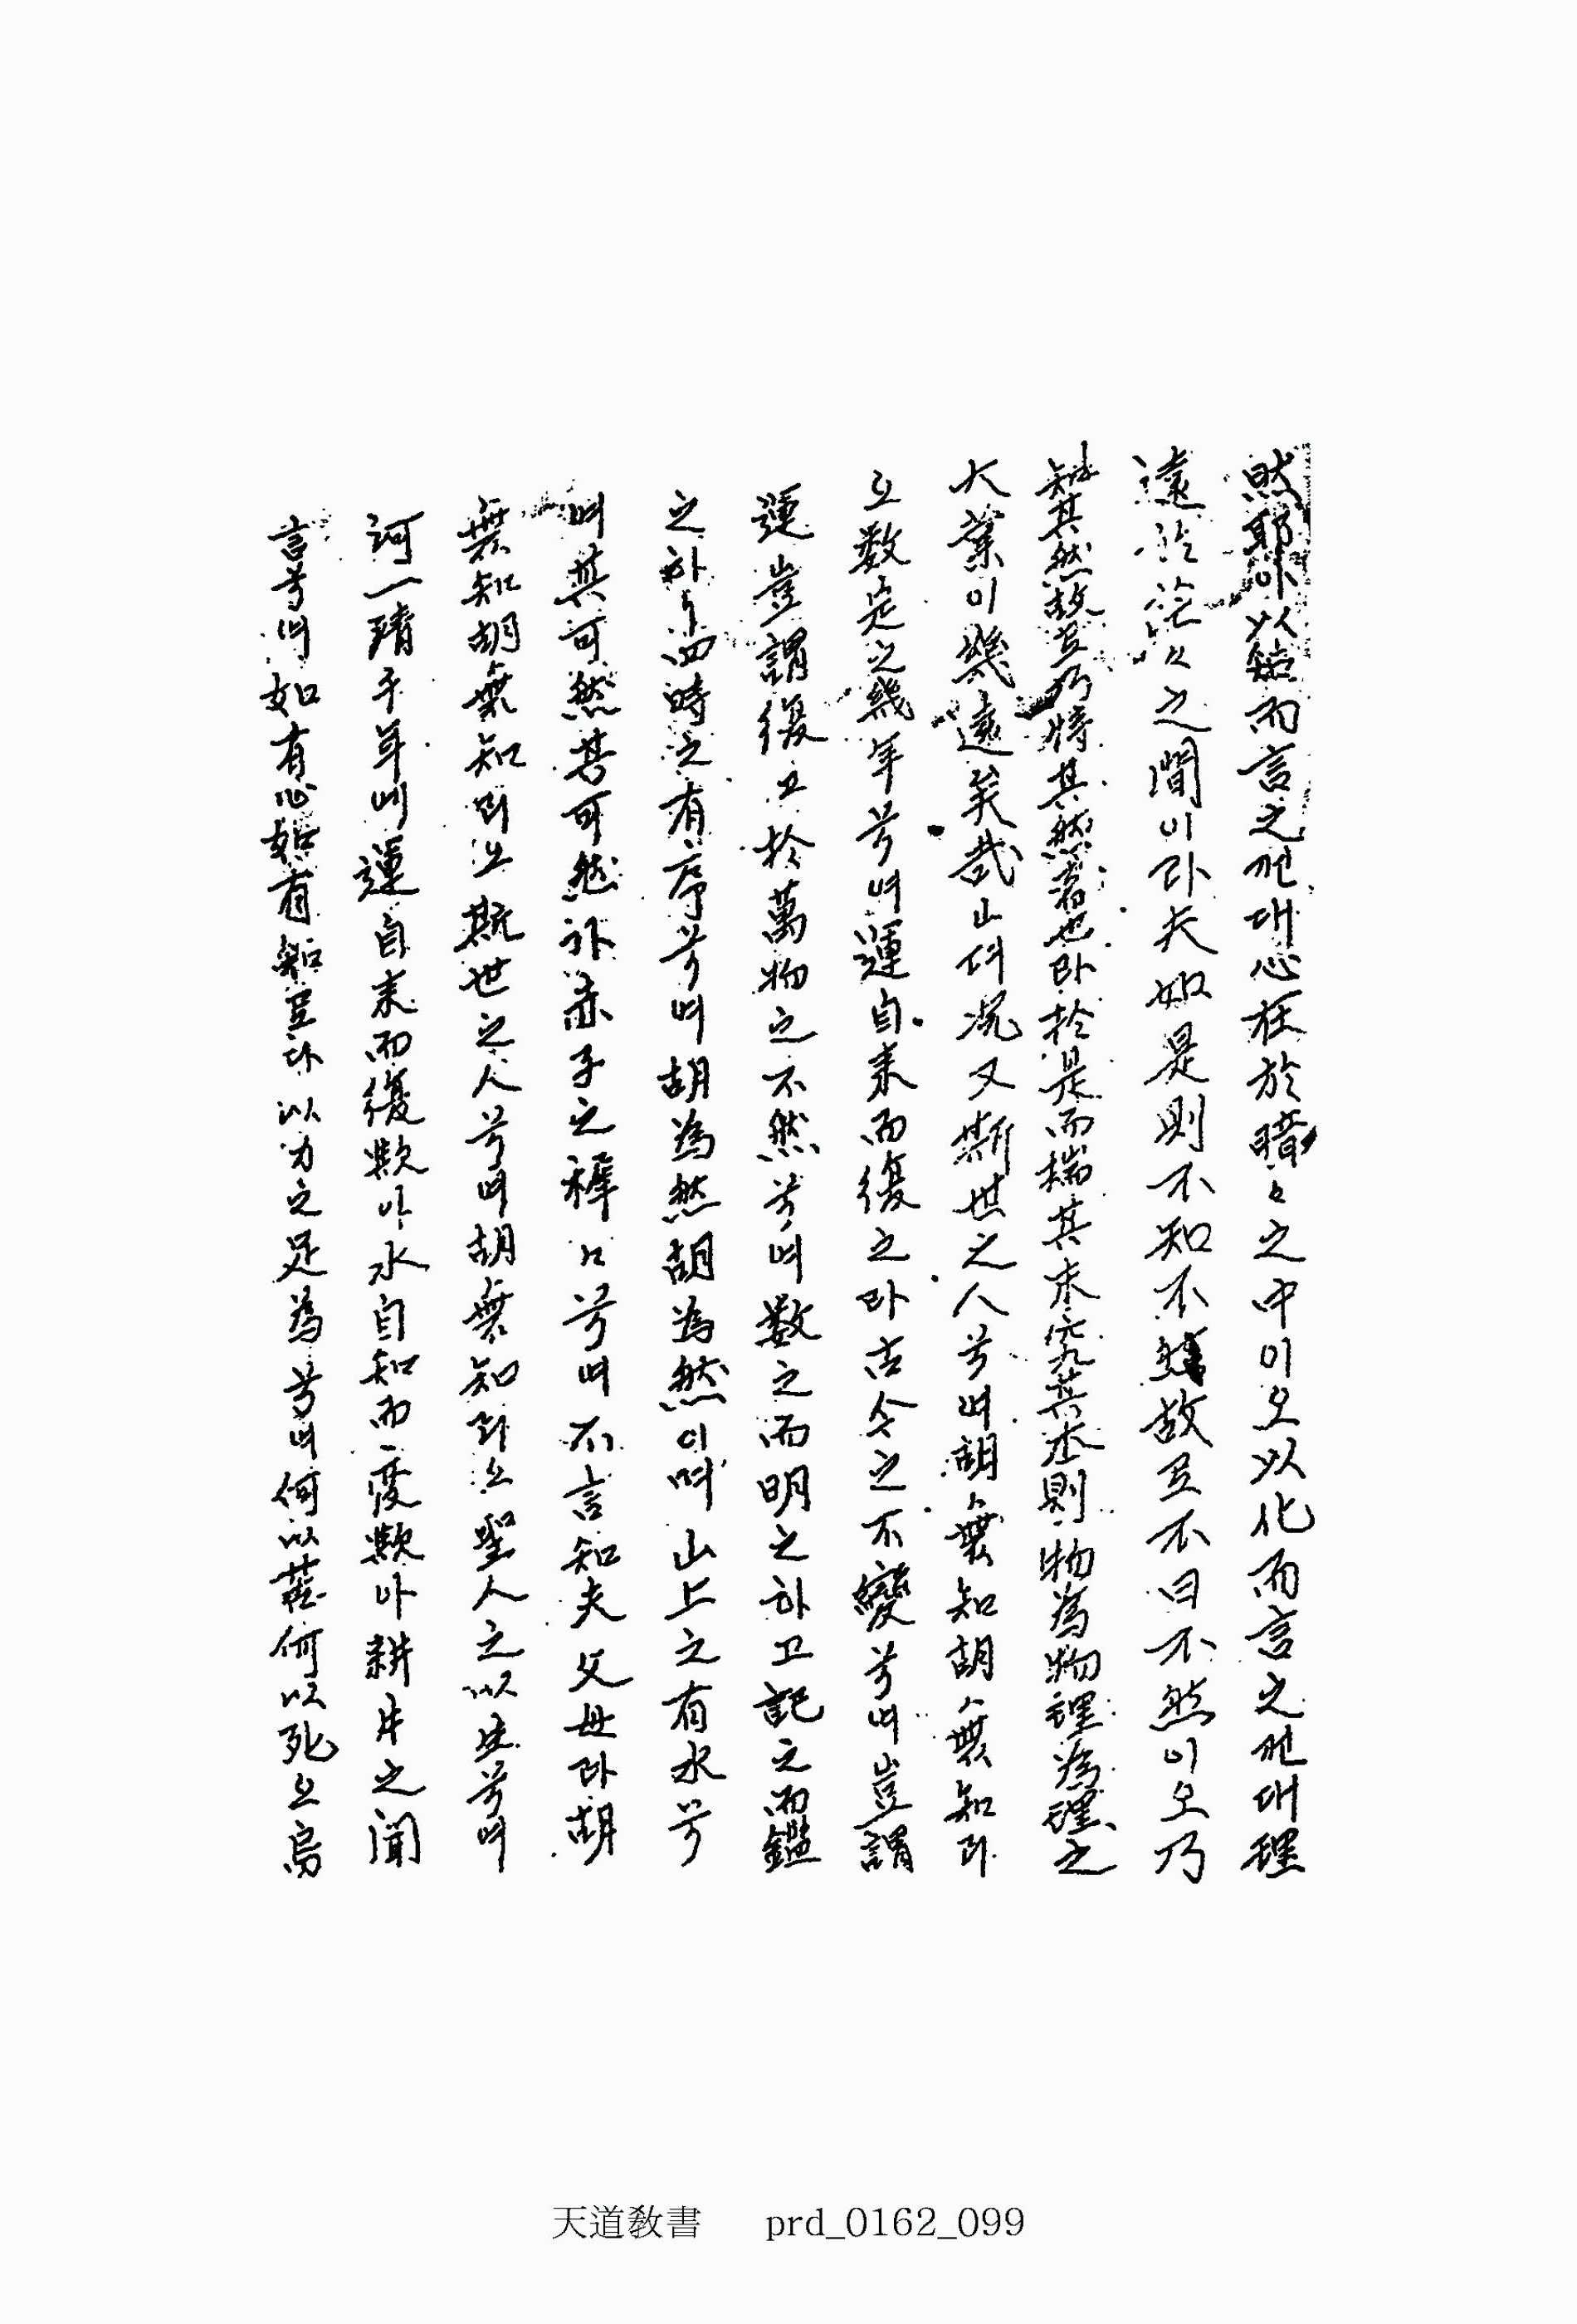 然耶아以始而言之컨대心狂於暗々之中이오以化而言之컨대理
遠於茫々之間이라夫如是則不知不然故로不曰不然이오乃
知其然故로乃恃其然者也라於是而揣其末究其本則物爲物理爲理之
大業이幾遠矣哉况又斯世之人兮여胡無知胡無知리
오數定之幾年兮여運自來而復之라古今之不變兮여豈謂
運豈謂復고於萬物之不然兮여數之而明之하고記之而鑑
之하四時之有序兮여胡爲然胡爲然이며山上之有水兮
여其可然其可然가赤子之穉々兮여不言知夫父母라胡
無知胡無知리오斯世之人兮여胡無知리오聖人之以生兮여
河一淸千年에運自來而復歟아水自知而變歟아耕牛之聞
言兮여如有心如有知로다以力之足爲兮여何以苦何以死오烏
天道敎書 prd_0162_099